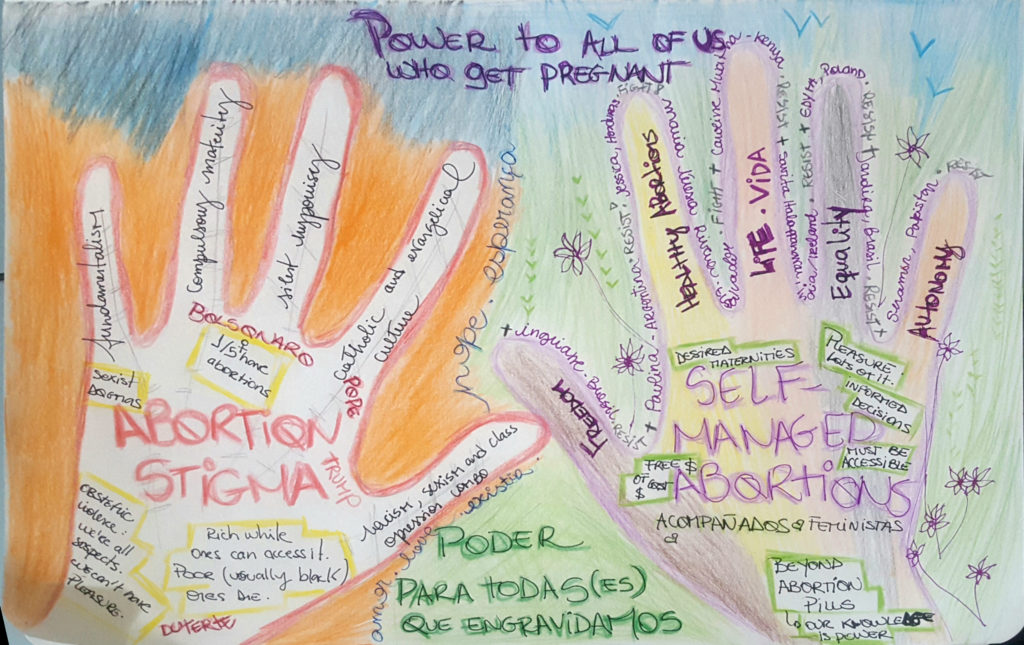 POWER TO ALL OF US
WHO GET PREGNANT
fundamentalism
compulsory maternity
silent hypocrisy
catholic and evangelical
culture
racism, sexism and class
oppression combo
BOLSONARO
1/5 have
abortions
sexist
DOGMAS
POPE
ABORTION
STIGMA
TRUMP
OBSTETRIC
violence:
we're all
suspects.
we can't have
PLEASURE.
Rich white
ones can access it.
Poor (usually black)
ones DIE.
DUTERTE
hope. esperança
amor. love.
PODER
PARA TODAS(ES)
QUE ENGRAVIDAMOS
FREEDOM
HEALTHY ABORTIONS
LIFE. VIDA
Equality
AUTONOMY
+ ingriane Brasil. RESIST
+ Paulina - ARGENTINA. RESIST. Jessica, Honduras
FIGHT + Caroline
- Kenya. RESIST + Savita Halappanavar
ireland. RESIST +
Poland. RESIST +
Brasil. RESIST +
Pakistan. RESIST
DESIRED
MATERNITIES
PLEASURE.
Lots of it.
INFORMED
DECISIONS
MUST BE
ACCESSIBLE
SELF-
MANAGED
ABORTIONS
FREE $
OF COST
$
ACOMPAÑADOS FEMINISTAS
BEYOND
ABORTION
PILLS
OUR KNOWLEDGE
IS POWER